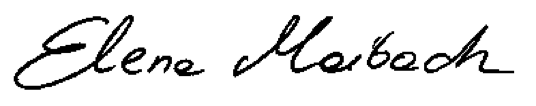 Elena Maibach